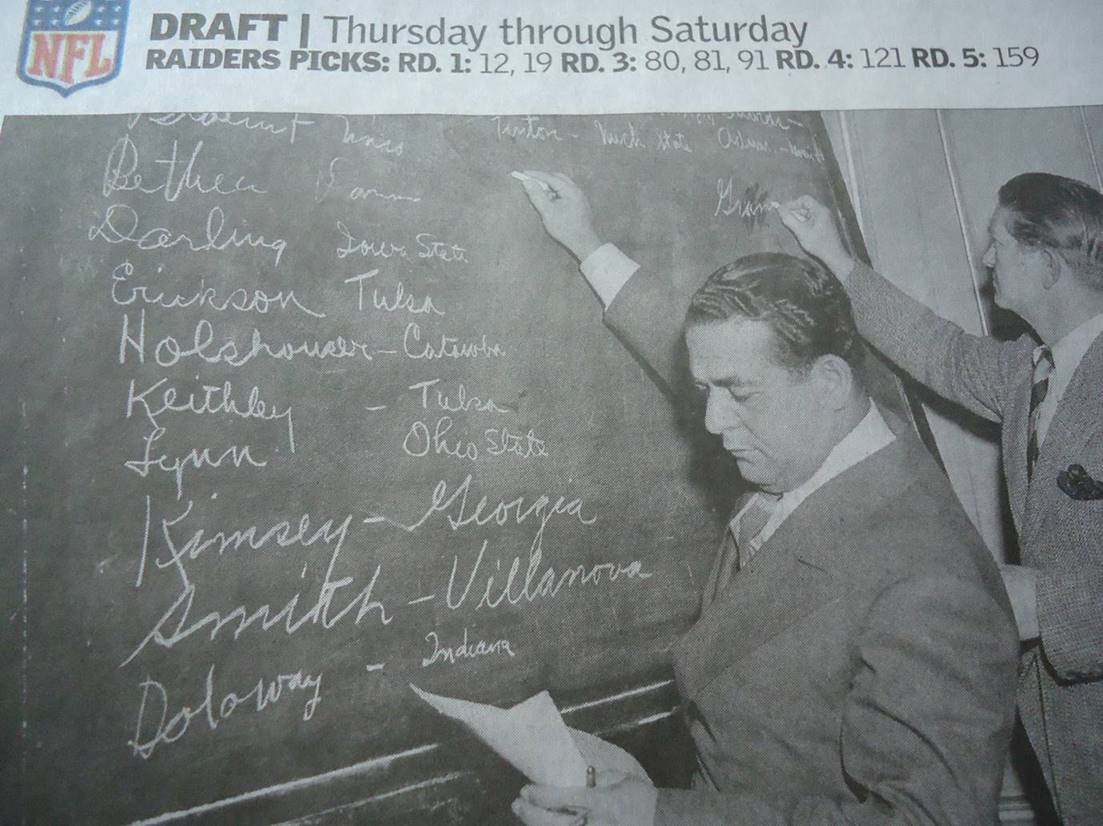 NFL
DRAFT | Thursday through Saturday
RAIDERS PICKS: RD. 1: 12, 19 RD. 3: 80, 81, 91 RD. 4: 121 RD. 5: 159
Tinton - Mich State
Bethea
Darling Iowa State
Erickson Tulsa
Holshouser - Catawba
Keithley - Tulsa
Lynn Ohio State
Kimsey - Georgia
Smith - Villanova
Doloway - Indiana